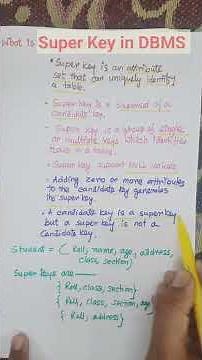 What Is Super Key in DBMS
* Super key is an attribute
set that can uniquely identify
a table.
* Super key is a superset of a
candidate key.
* Super key is a group of single
or multiple keys which identifies
rows in a table.
* Super key support NULL values
* Adding zero or more attributes
to the candidate key generates
the super key.
* A candidate key is a super key
but a super key is not a
candidate key.
Student = { Roll, name, age, address,
class, section}
Super keys are —
{ Roll, class, section}
{ Roll, class, section, age}
{ Roll, address}